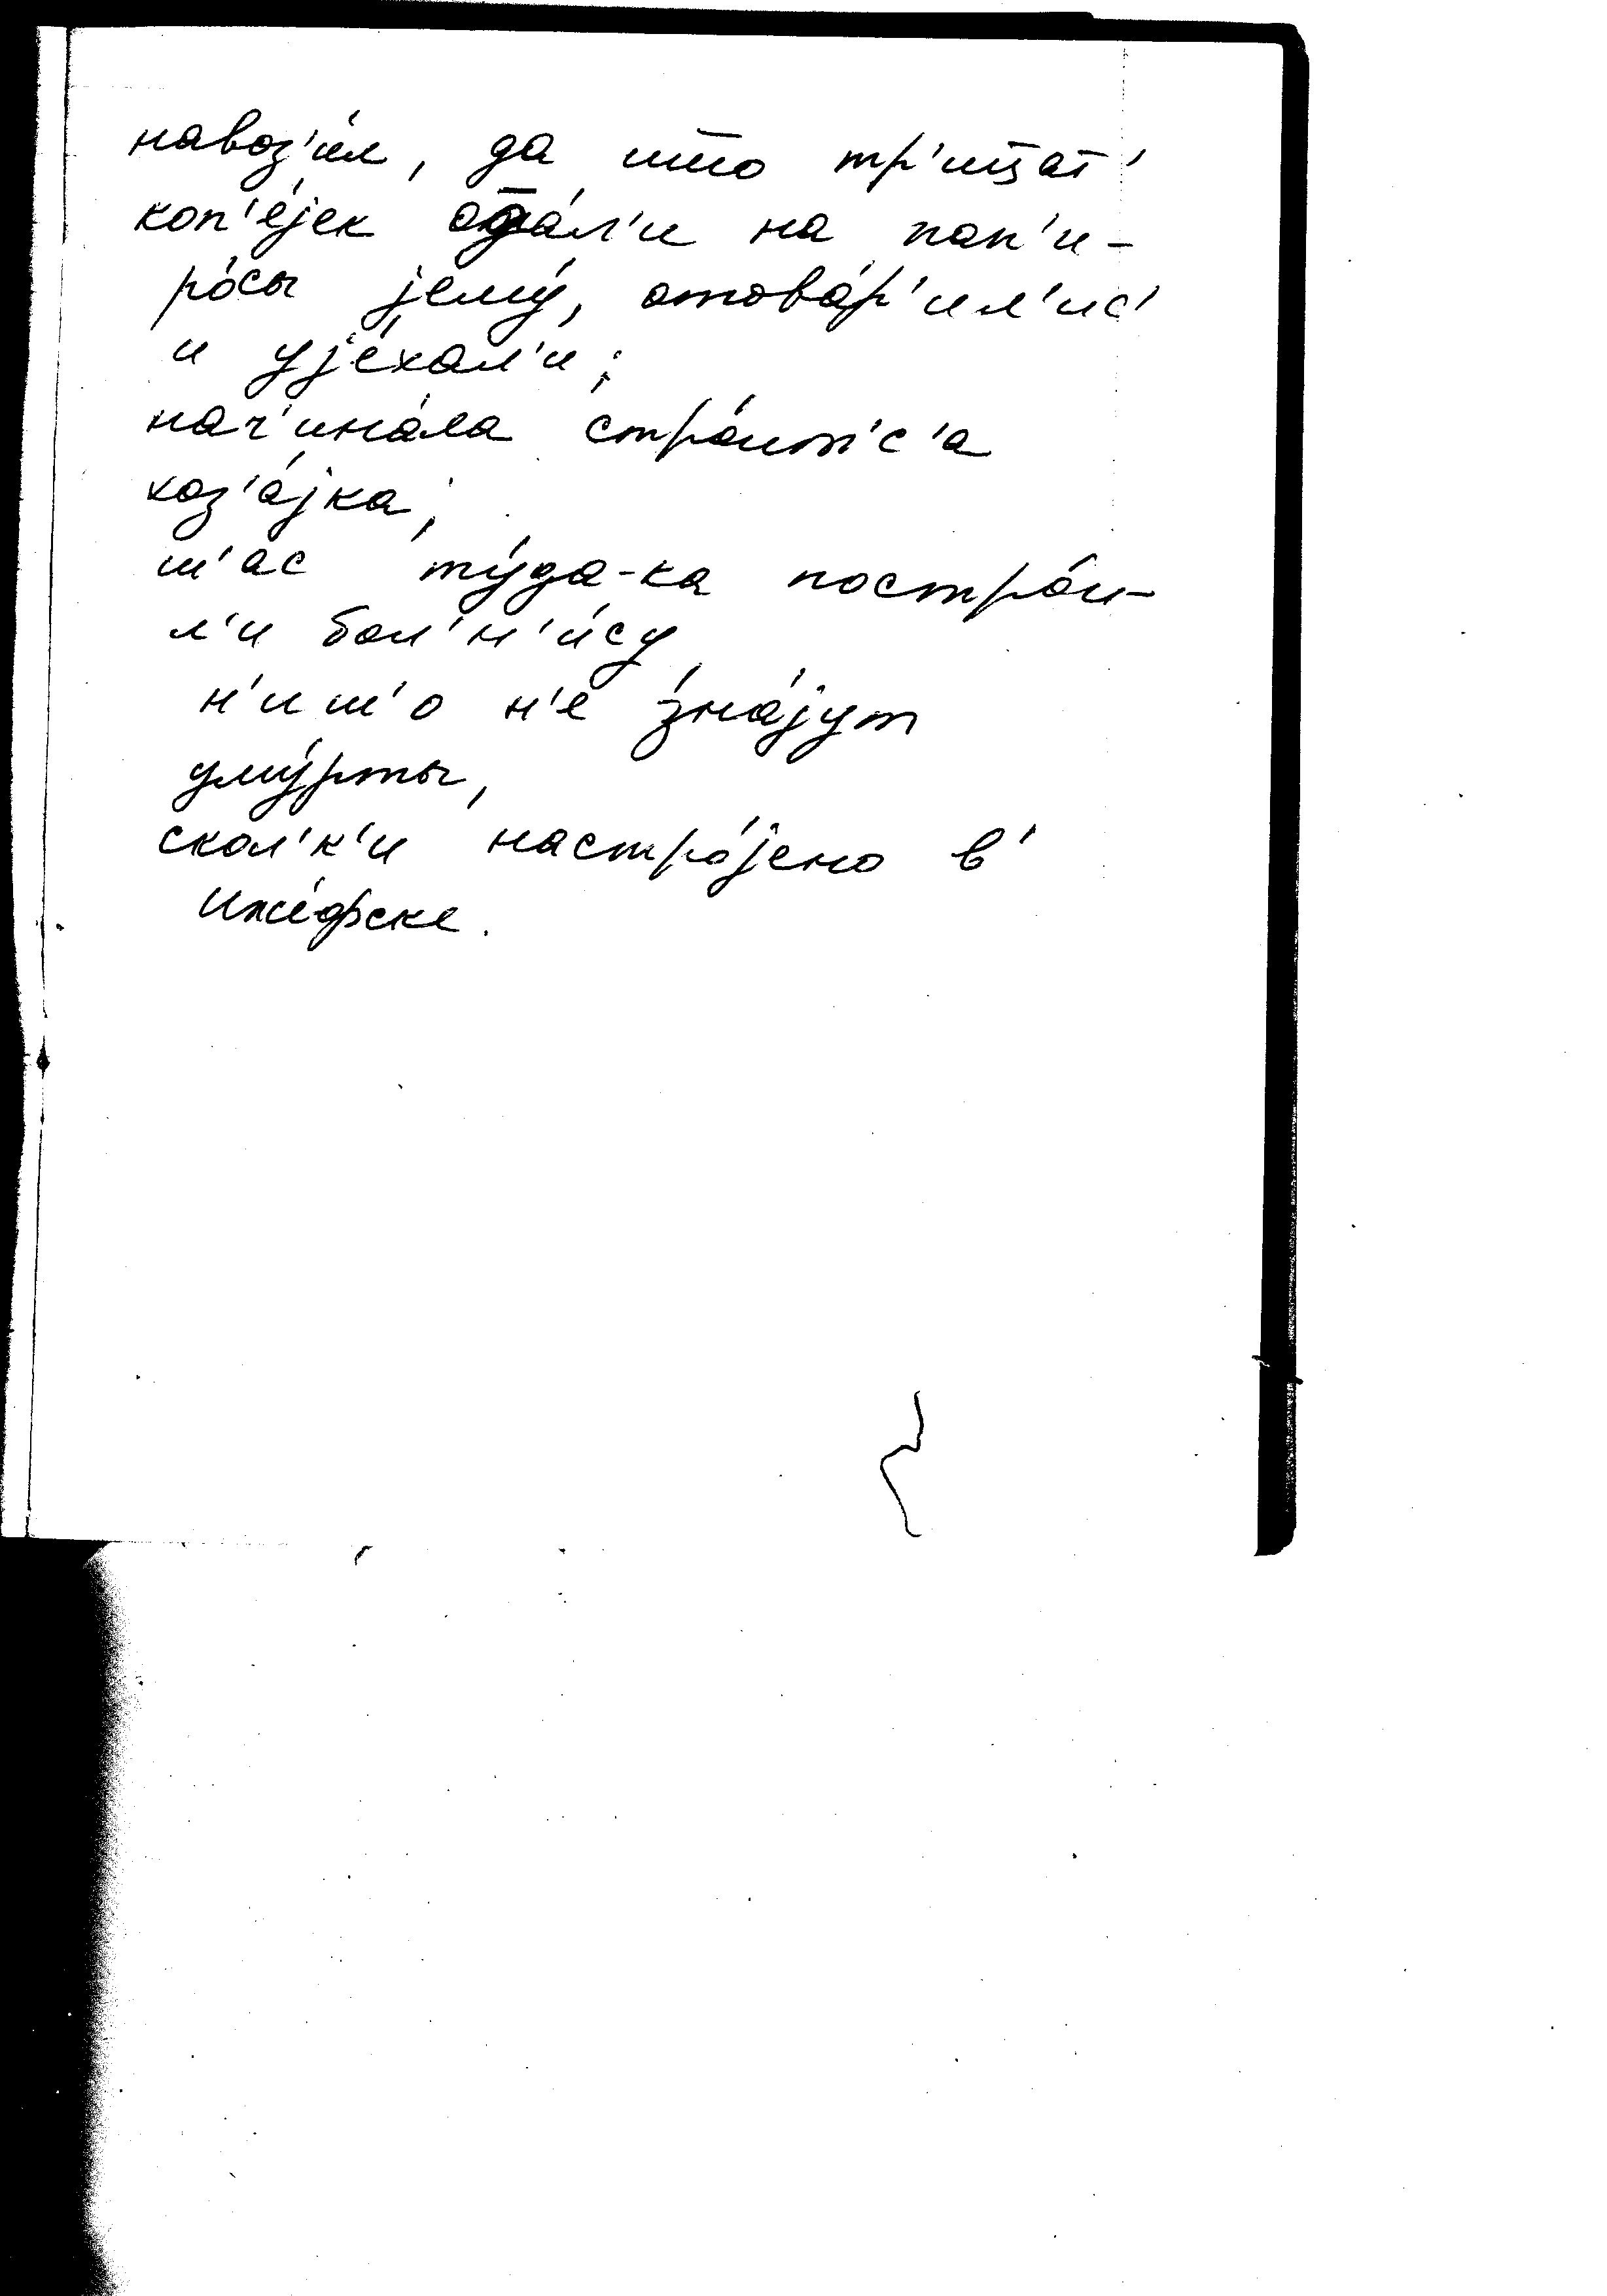 навоз'и́л, да што тр'иц̄ат'
коп'е́јек од̄а́л'и на пап'и-
ро́сы јему́, отова́р'ил'ис'
и ује́хал'и;
нач'ина́ла стро́ит'с'а
хоз'а́јка;
ш'ас ту́да-ка постро́и-
л'и бол'н'и́су
н'иш'о н'е зна́јут
уму́рты,
скол'к'и настро́јено в'
Иже́фске.